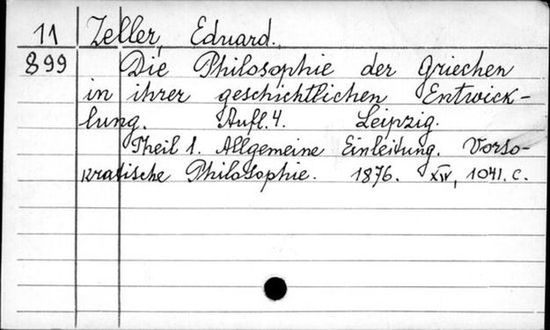 11 Zeller, Eduard.
899 Die Philosophie der Griechen
in ihrer geschichtlichen Entwick-
lung. Aufl. 4. Leipzig.
Theil 1. Allgemeine Einleitung. Vorso-
kratische Philosophie. 1876. XIV, 1041. c.